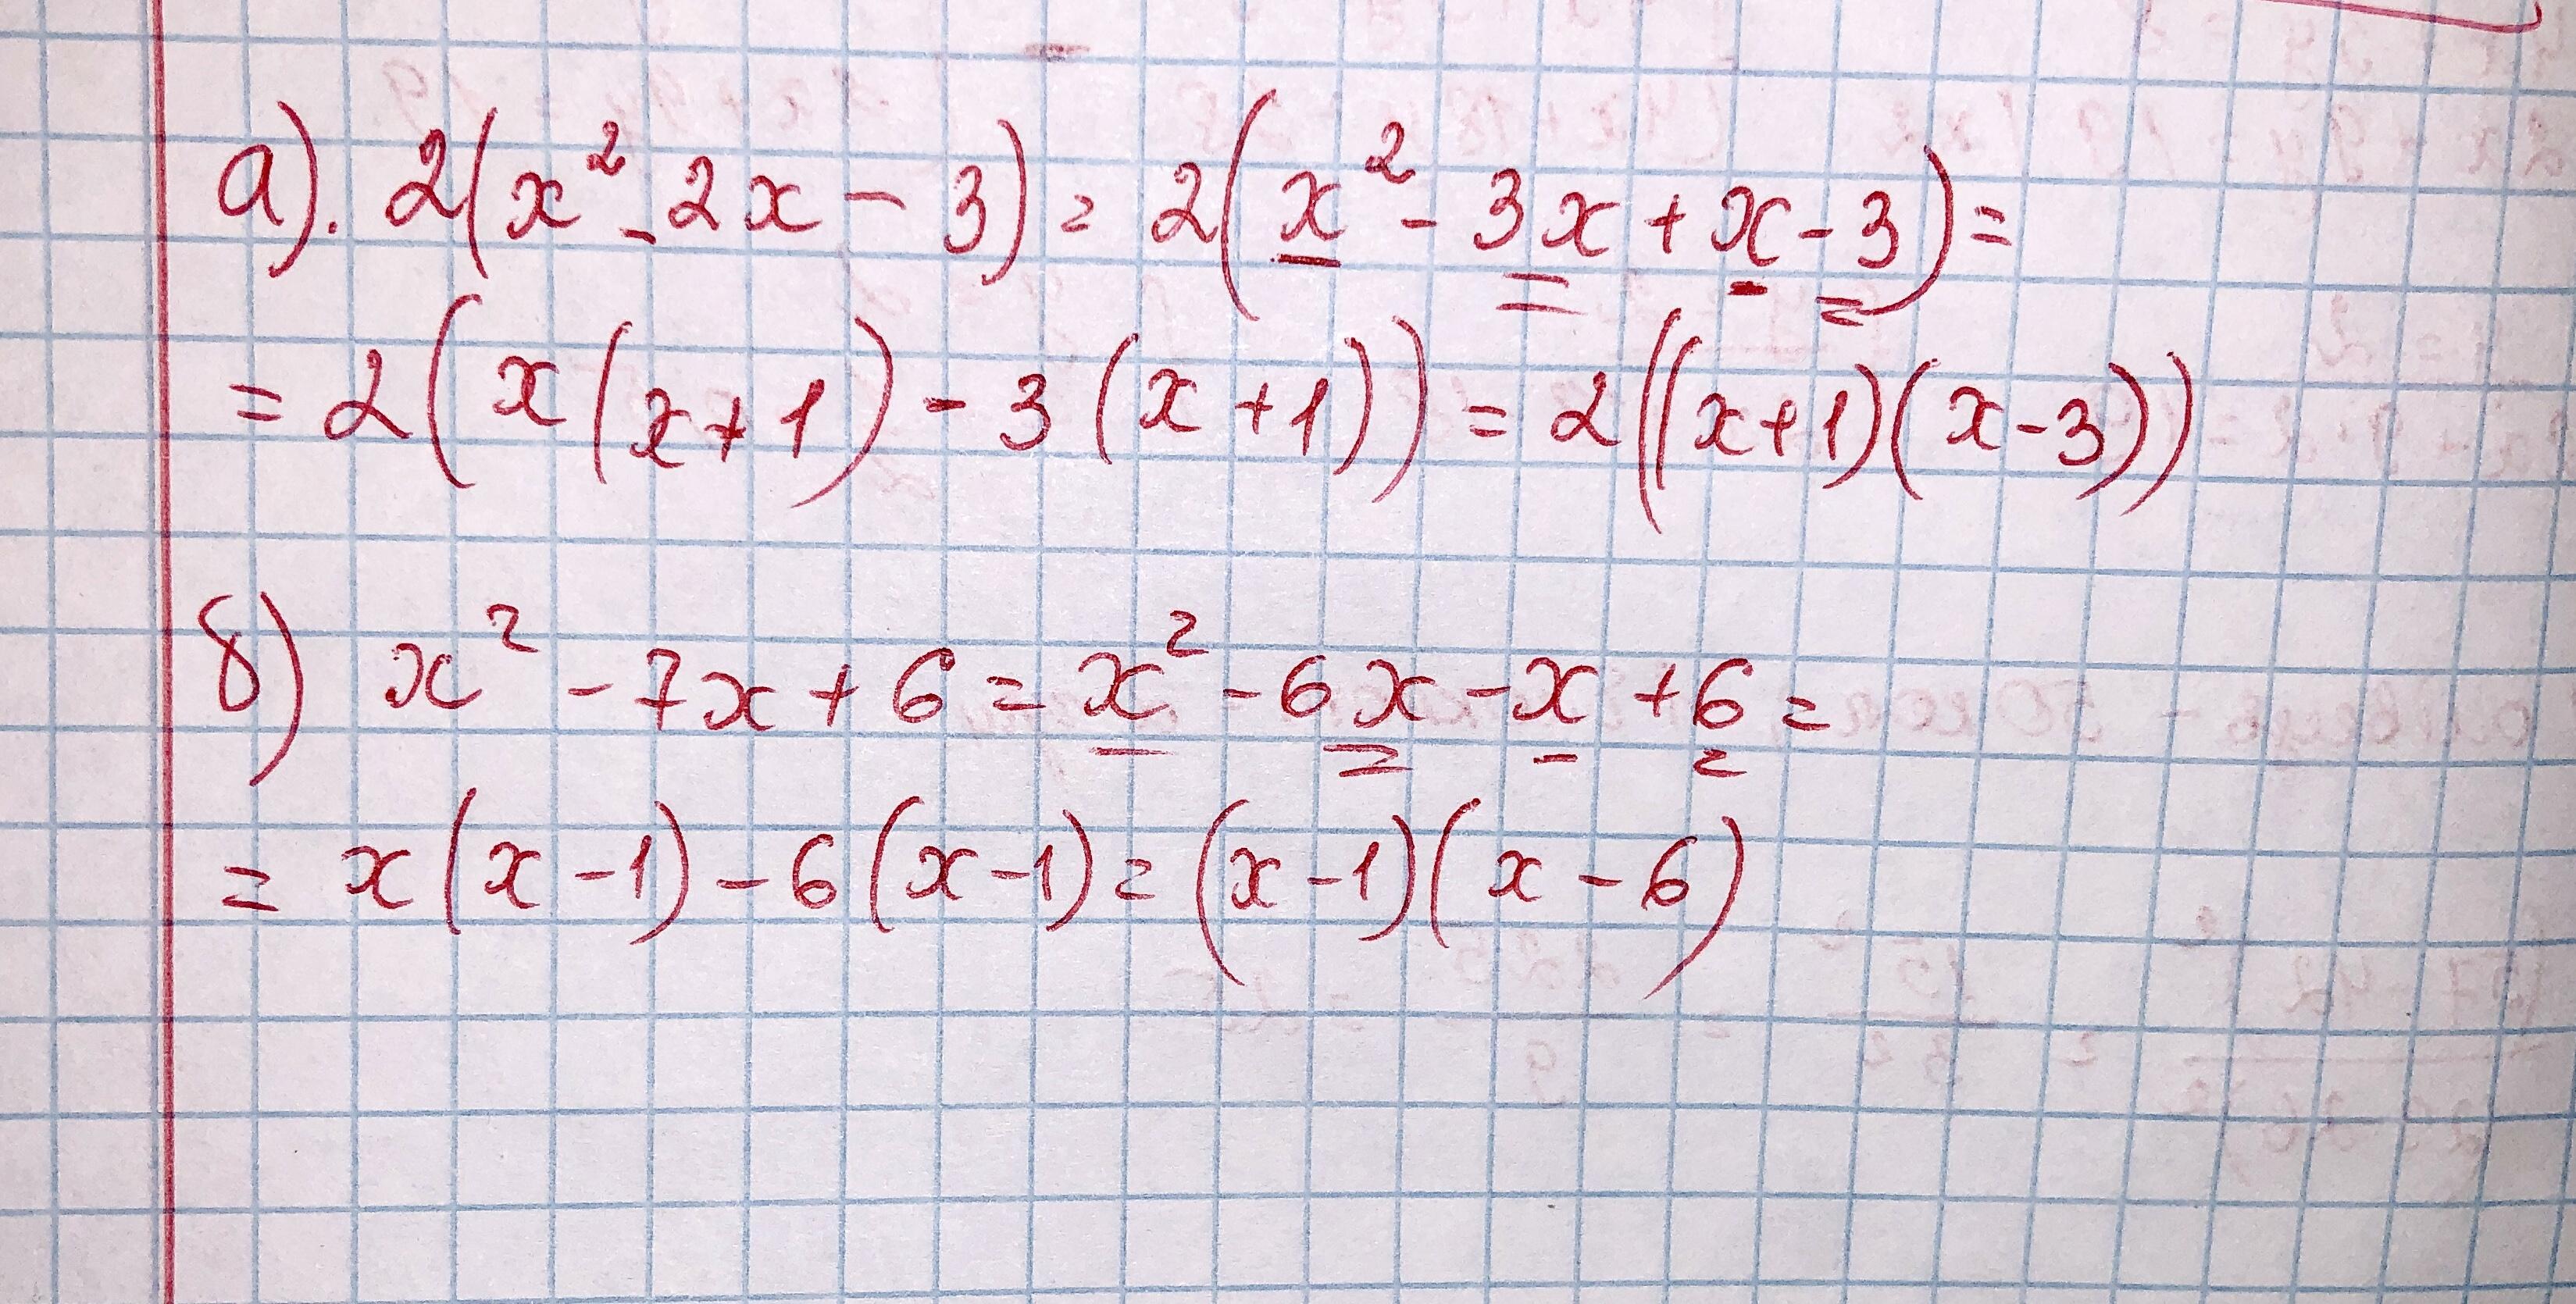 а). 2(x² - 2x - 3) = 2(x² - 3x + x - 3) =
= 2(x(x+1) - 3(x+1)) = 2((x+1)(x-3))
б) x² - 7x + 6 = x² - 6x - x + 6 =
= x(x-1) - 6(x-1) = (x-1)(x-6)